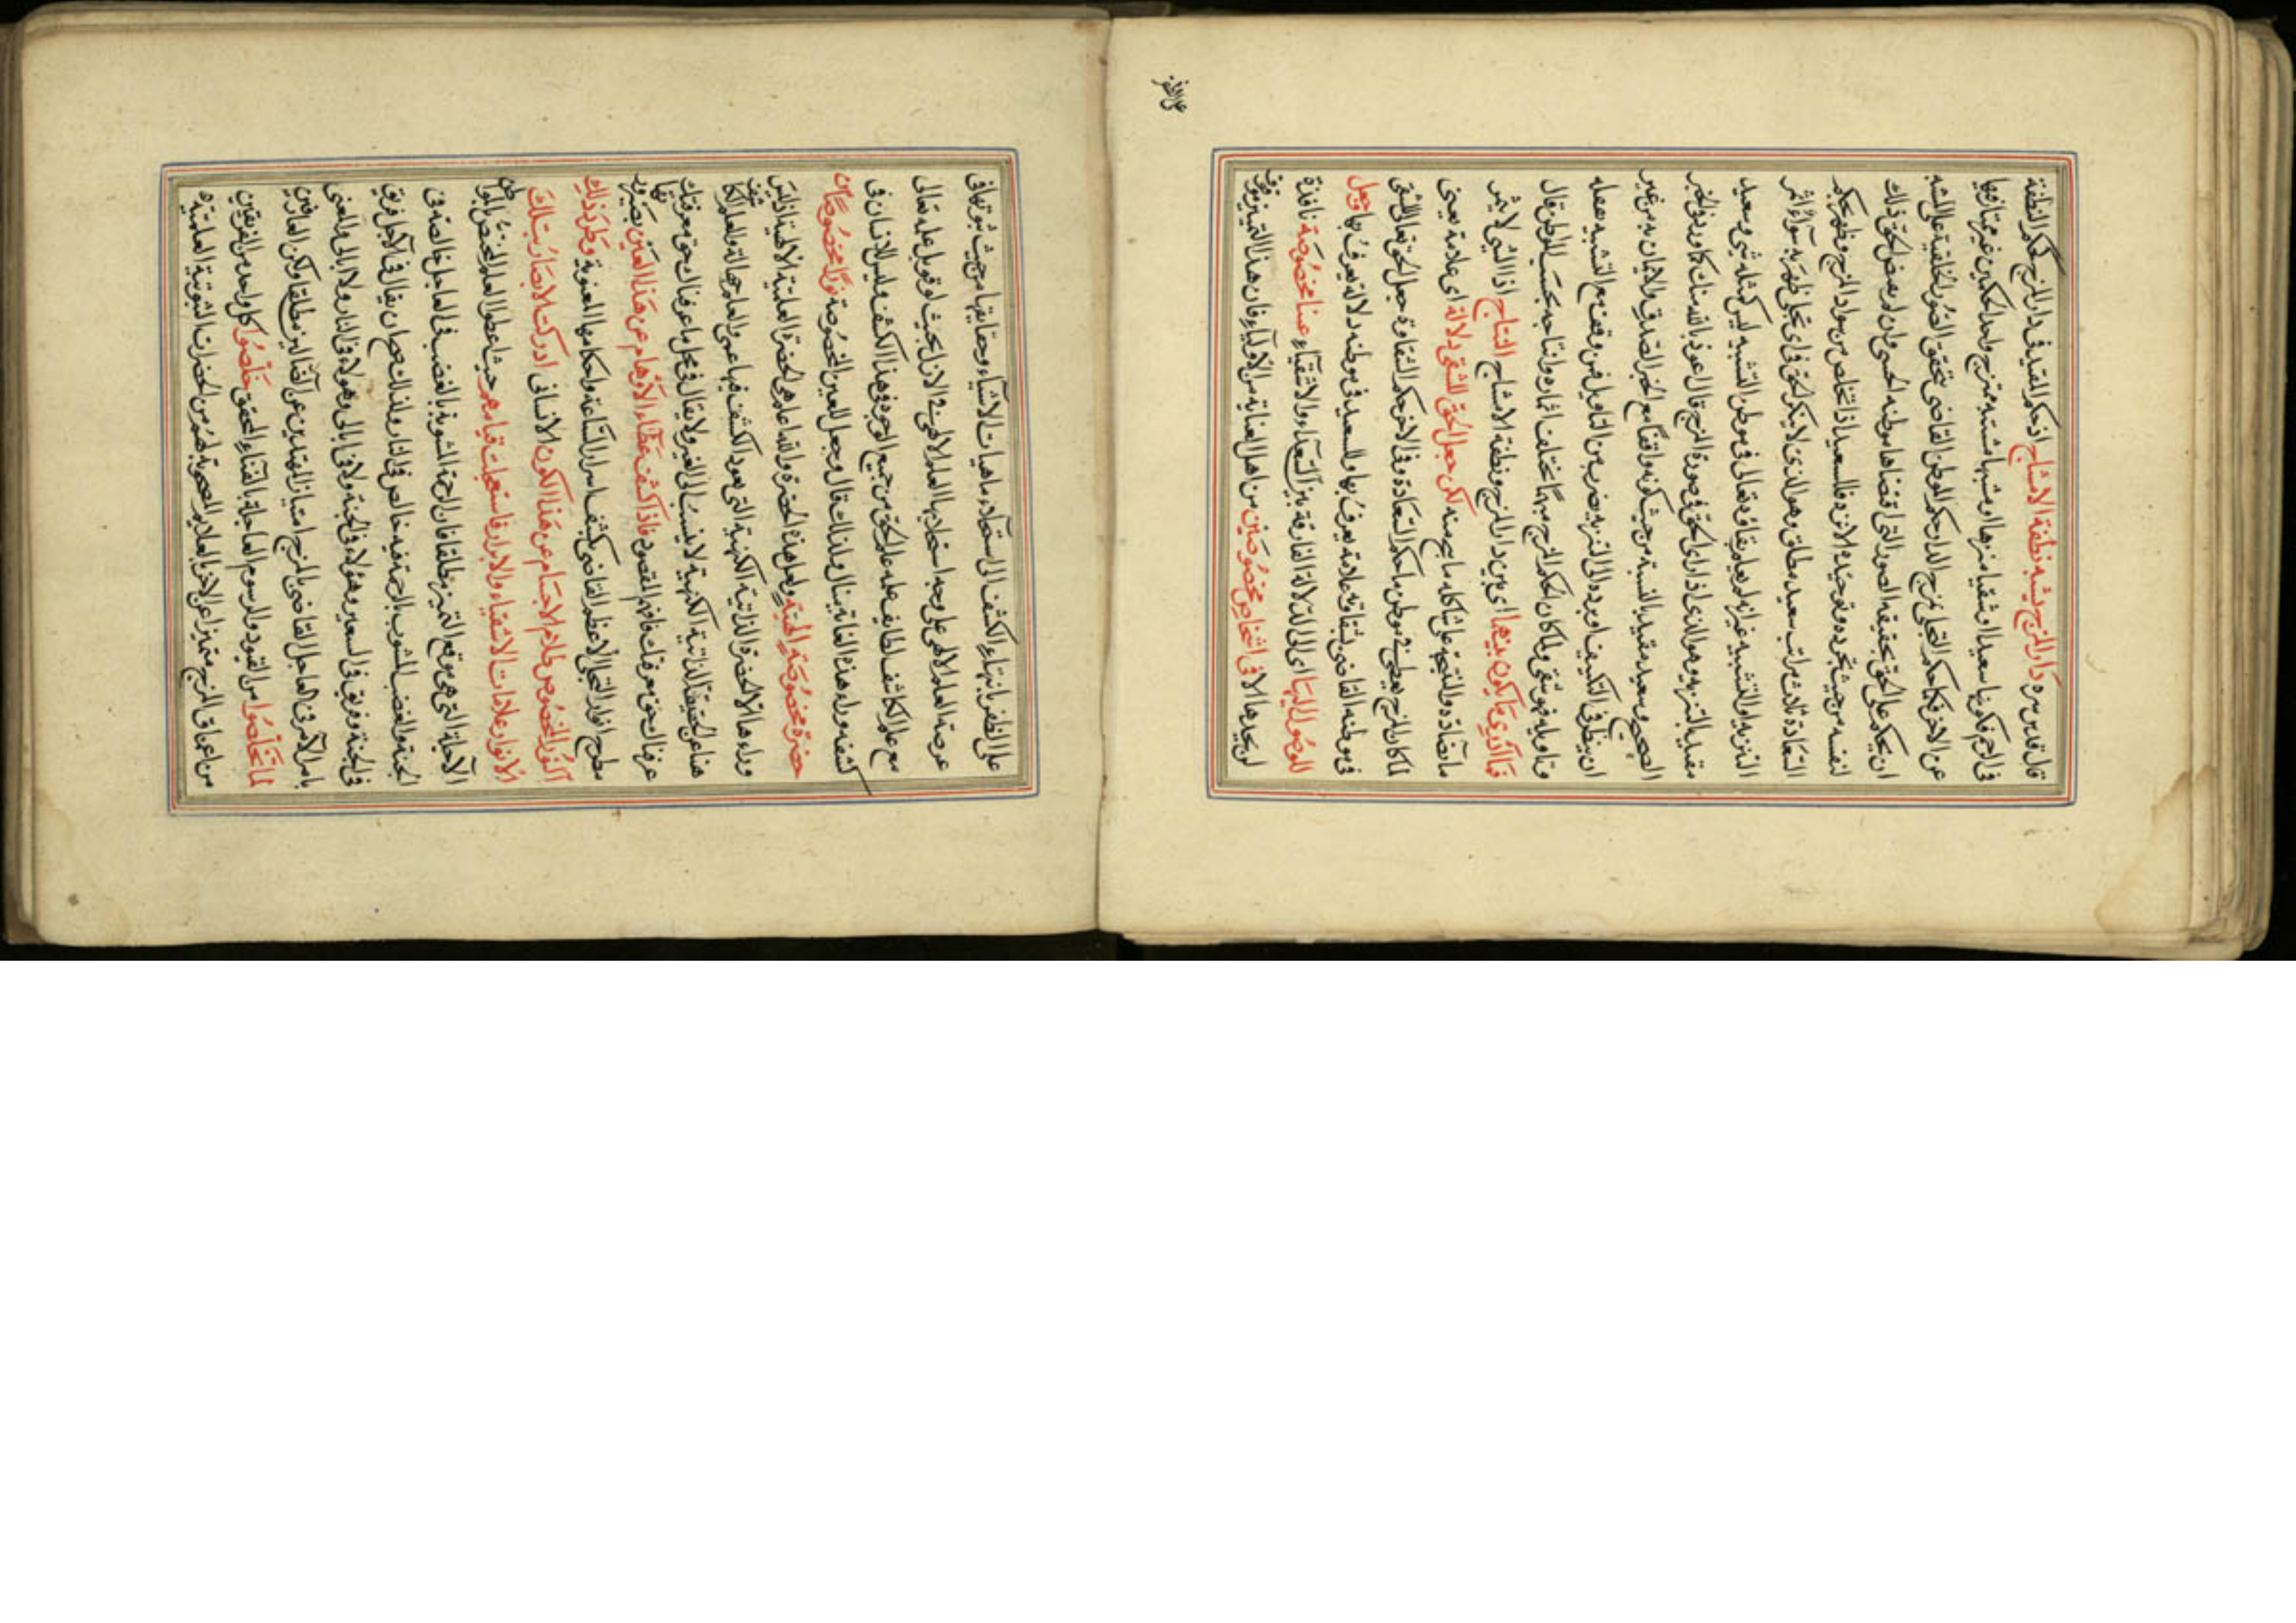 قال قدس سره دار المزج يشبه نطفة الامشاج اذ حكم المقيد في دار المزج كحكم النطفة
في الرحم فكونها سعيدا وشقيا منزها ومشبها مشتبه ممتزج واحد الحكمين غير ممتاز فيها
عن الاخر فكما حكم التجلي بمزج الدار حكم الموطن القاضي بتحقق الصور الخلقية على المشبه
ان يحكم على الحق بحقيقة الصور التي اقتضاها موطنه الحسي وان لم الحق ذلك
لنفسه من حيث تجرده وتوحيده الانزه فالسعيد اذا تخلص من سواد المزج وظهر بحكم
السعادة ثلاث مراتب سعيد مطلق وهو الذي لا ينكر الحق في اي تجل ظهر به سواء اثمر
التنزيه او التشبيه غير انه تعالى في موطن التشبيه ليس كمثله شئ وسعيد
مقيد بالتنزيه وهو الذي اذا راى الحق في صورة المزج قال اعوذ بالله منك كما ورد في الخبر
الصحيح وسعيد مقيد بالنسبة من حيث كونه واقفا مع الخبر الصدق والايمان به من غير
ان ينظر في التكييف او يرده الى التنزيه بضرب من التاويل فمن وقف مع التشبيه بعقله
وتاويله فهو شقي ولما كان الحكم المزج مبهما مختلف اثماره وانتاجه بحسب المواطن قال
فما ادري ما يكون بينهما اي بين دار المزج ونطفة الامشاج النتاج اذ الشئ لا يثمر
ما يضاده والنتيجة على شاكلة ما نتج منه لكن جعل الحق للشقي دلالة اي علامة يعني
لما كان المزج يعطي في موطن ما حكم السعادة وفي الاخر حكم الشقاوة جعل الحق تعالى للشقي
في موطنه القاضي بشقاوته علامة يعرف بها وللسعيد في موطنه دلالة يعرف بها وجعل
للوصول اليها اي الى الدلالة الفارقة بين السعداء والاشقياء عينا مخصوصة نافذة
لن يجدها الا في اشخاص مخصوصين من اهل العناية من الاولياء فان هذا التمييز موقوف
على الظفر
على الظفر بانتهاء الكشف الى استعداد ماهيات الاشياء وحقايقها من حيث ثبوتها في
عرصة العلم الالهي على وجه استجلاها العلم الالهي في الازل بحيث لو قوبل علمه تعالى
مع علم الكاشف لطابق علمه علم الحق من جميع الوجوه في هذا الكشف وليس للانسان في
كشفه وراء هذه الغاية منال ولذلك قال وجعل للعين المخصوصة نورا مخصوصا من
حضرة مخصوصة الهية ولعل هذه الحضرة والله اعلم هي الحضرة العلمية الالهية اذ ليس
وراءها الا الحضرة الذاتية الكنهية التي يعود الكشف فيها عمى والعلم جهالة والعلم
هنا عن الحقيقة الذاتية الكنهية لا ينسب الى الغير ولا يقال في محل ما عرفناك حق معرفتك
عرفناك حق معرفتك فافهم المقصود فاذا كشف غطاء الاوهام عن هذا العين بصيرورته
مطرح انوار التجلي الاعظم القاضي بكشف اسرار الساعة واحكامها المعنوية وطرد ذلك
النور المخصوص ظلام الاجسام عن هذا الكون الانساني ادركت الابصار بتلك
الانوار علامات الاشقياء والابرار فاستعجلت قيامهم حيث اعطوا العلم المختص بالمواطن
الآجلة التي هي موقع التمييز مطلقا فان الرحمة المشوبة بالغضب في العاجل خالصة في
الجنة والغضب المشوب بالرحمة فيه خالص في النار ولذلك صح ان يقال في الآجل فريق
في الجنة وفريق في السعير وهؤلاء في الجنة ولا ابالي وهؤلاء في النار ولا ابالي والمعنى
بامر الآمر في العاجل القاضي بالمزج امتياز القيدين عن القائلين مطلقا ولكن العارفين
لما تخلصوا من القيود والرسوم العاجلة بالفناء المحقق خلصوا كل واحد من الفريقين
من اعيان المزج متميزا عن الاخر بالعلايم المصحوبة لهم من الحضرات الثبوتية العلمية